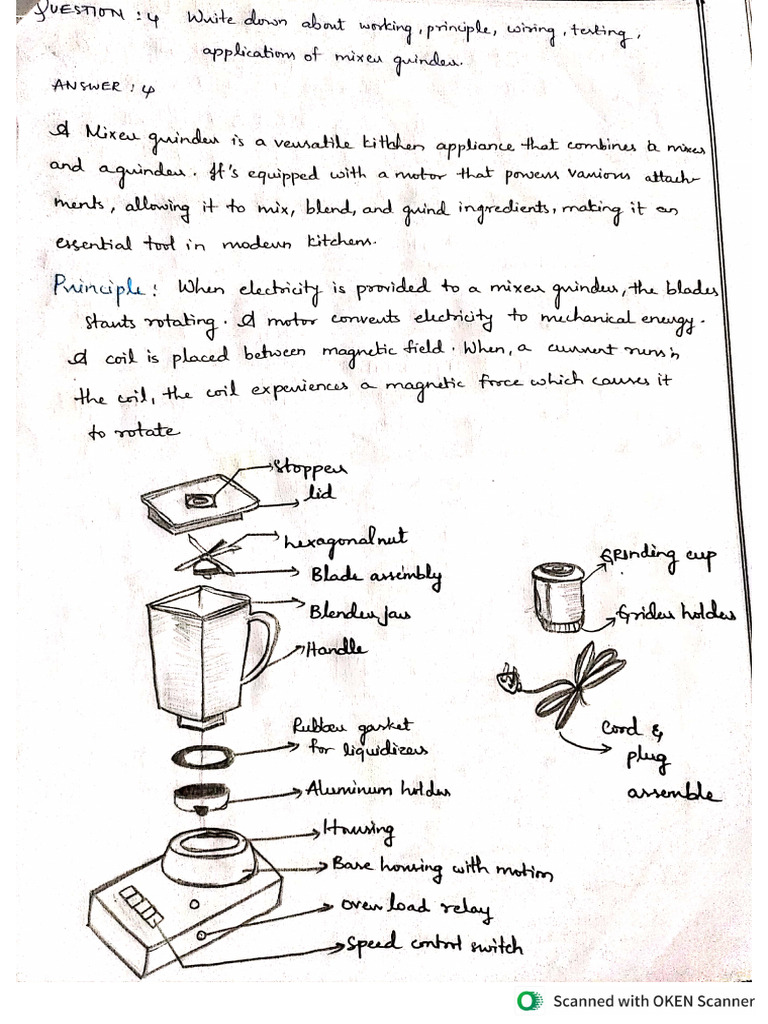 QUESTION : 4 Write down about working, principle, wiring, testing,
applications of mixer grinder.
ANSWER : 4
A Mixer grinder is a versatile kitchen appliance that combines a mixer
and a grinder. It's equipped with a motor that powers various attach-
ments, allowing it to mix, blend, and grind ingredients, making it an
essential tool in modern kitchens.
Principle: When electricity is provided to a mixer grinder, the blades
starts rotating. A motor converts electricity to mechanical energy.
A coil is placed between magnetic field. When, a current runs in
the coil, the coil experiences a magnetic force which causes it
to rotate
Stopper
lid
hexagonal nut
Blade assembly
Blender jar
Handle
Rubber gasket
for liquidizers
Aluminum holder
Housing
Base housing with motion
Over load relay
Speed control switch
Grinding cup
Grider holder
Cord &
plug
assemble
Scanned with OKEN Scanner